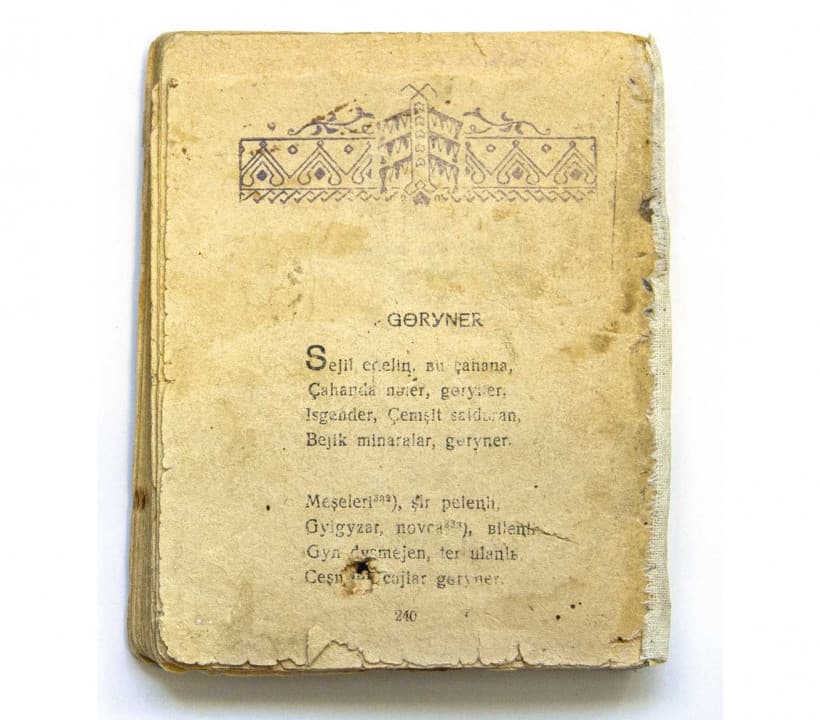 GɵRYNER
Sejil edelin, ʙu çahana,
Çahanda nəler, gɵryner,
Isgender, Çemşit salduran,
Bejik minaralar, gɵryner.
Meşeleri³³²), şir pelenlı,
Gyigyzar, novça³³³), ʙilenlı
Gyn dyşmejen, ter ulanlı
Ceşm cajlar gɵryner.
240